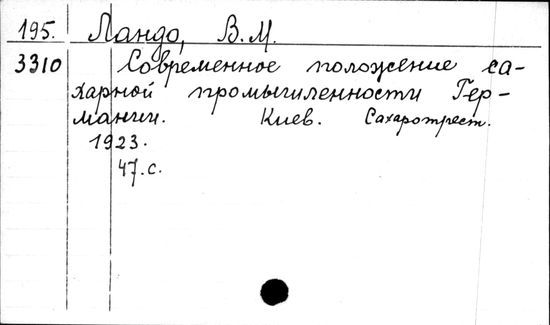 195. Ландо, В.М.
3310 Современное положение са-
харной промышленности Гер-
мании. Киев. Сахаротрест.
1923.
47.с.